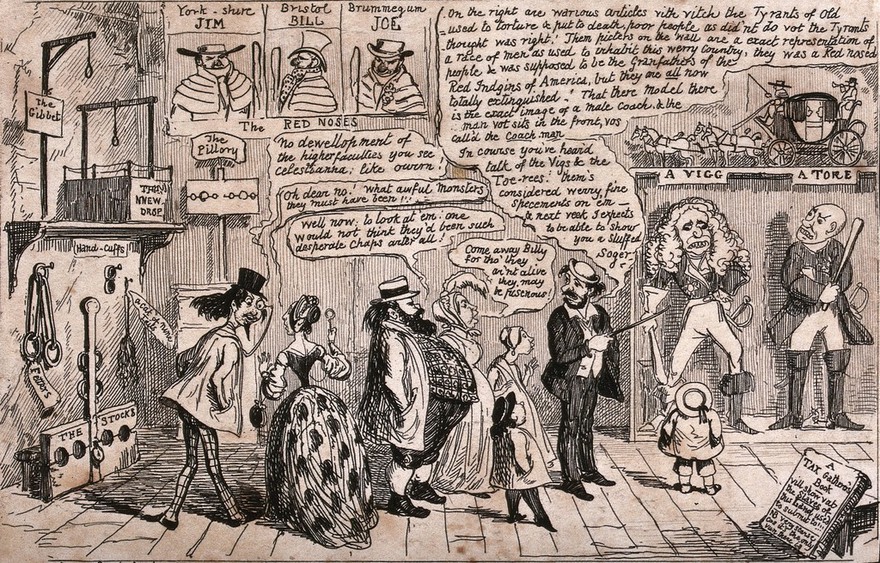 York-shire
JIM
Bristol
BILL
Brummegum
JOE
The RED NOSES
On the right are warious articles vith vitch the Tyrants of Old
used to torture & put to death, poor people as did nt do vot the Tyrants
thought was right! Them picters on the wall are a exact representation of
a race of men as used to inhabit this werry country, they was a Red nosed
people & was supposed to be the Granfathers of the
Red Indgins of America, but they are all now
totally extinguished! That there Model there
is the exact image of a male Coach, & the
man vot sits in the front, vos
call'd the Coach man
In course you've heard
talk of the Vigs & the
Toe-rees! them's
considered werry fine
specements on em—
& next veek I expects
to be able to show
you a stuffed
Soger
The
Gibbet
THE
NEW
DROP
The
Pillory
No dewellopment of
the higher faculties you see
Celestianna, like owern!
Oh dear no! what awful Monsters
they must have been!!
Well now, to look at em one
would not think they'd been such
desperate Chaps arter all!
Come away Billy
for tho' they
ar'nt alive
they may
be fusenous!
A VIGG
A TORE
Hand-cuffs
a cat o' nine
tails
Fetters
THE STOCKS
A
TAX Gatherers
Book